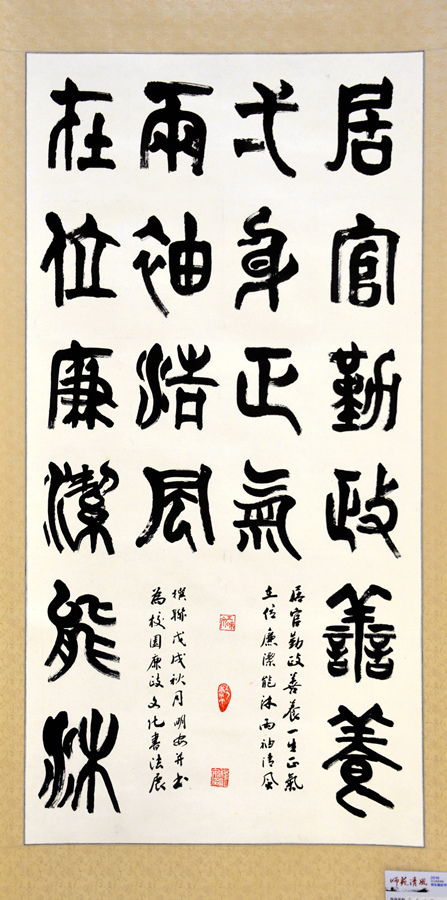 居官勤政善養
弌身正氣
在位廉潔能沐
兩袖浩風
居官勤政善養一生正氣
在位廉潔能沐兩袖清風
撰聯戊戌秋月明安并书
為校园廉政文化書法展
师范清风